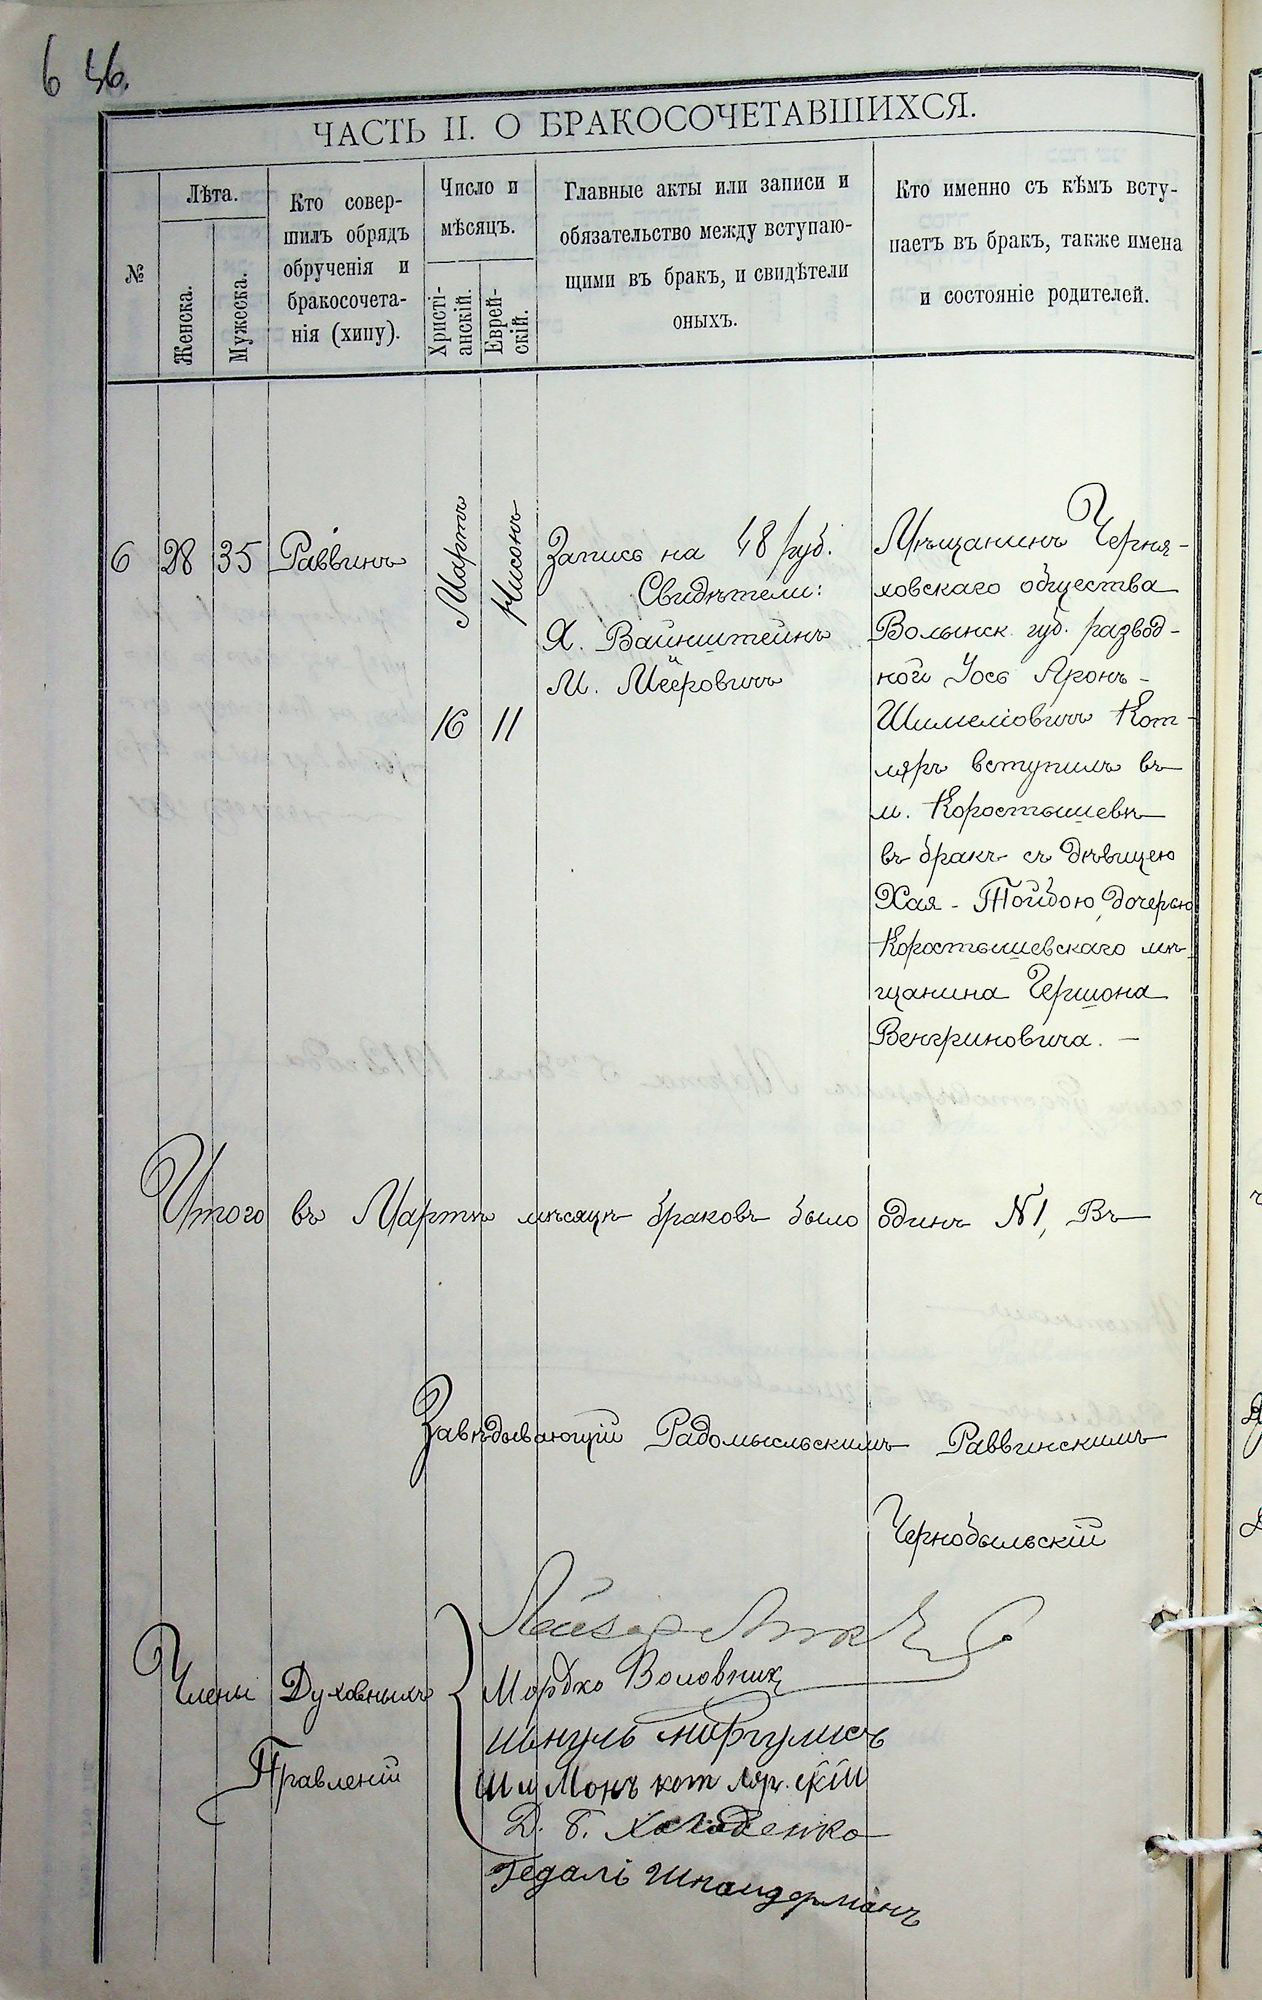 6 46.
ЧАСТЬ II. О БРАКОСОЧЕТАВШИХСЯ.
№
Лѣта.
Женска.
Мужеска.
Кто совер-
шилъ обрядъ
обрученія и
бракосочета-
нія (хипу).
Число и
мѣсяцъ.
Христі-
анскій.
Еврей-
скій.
Главные акты или записи и
обязательство между вступаю-
щими въ бракъ, и свидѣтели
оныхъ.
Кто именно съ кѣмъ всту-
паетъ въ бракъ, также имена
и состояніе родителей.
6
28
35
Раввинъ
Мартъ
16
Нисонъ
11
Запись на 48 руб.
Свидѣтели:
Я. Вайнштейнъ
М. Мееровичъ
Мѣщанинъ Черня-
ховскаго общества
Волынск. губ. развод-
ной Іось Аронъ-
Шимеліовичъ Кот-
ляръ вступилъ въ
м. Коростышевѣ
въ бракъ съ дѣвицею
Хая-Тойбою, дочерью
Коростышевскаго мѣ-
щанина Гершона
Венгриновича. —
Итого въ Мартѣ мѣсяцѣ браковъ было одинъ №1, Въ
Завѣдывающій Радомысльскимъ Раввинскимъ
Чернобыльскій
Члены Духовныхъ
Правленій
Мордко Воловник
Шмуль Маргулисъ
Шимонъ котлярскій
Д. Б. Холоденко
Гедалі Шпандерманъ